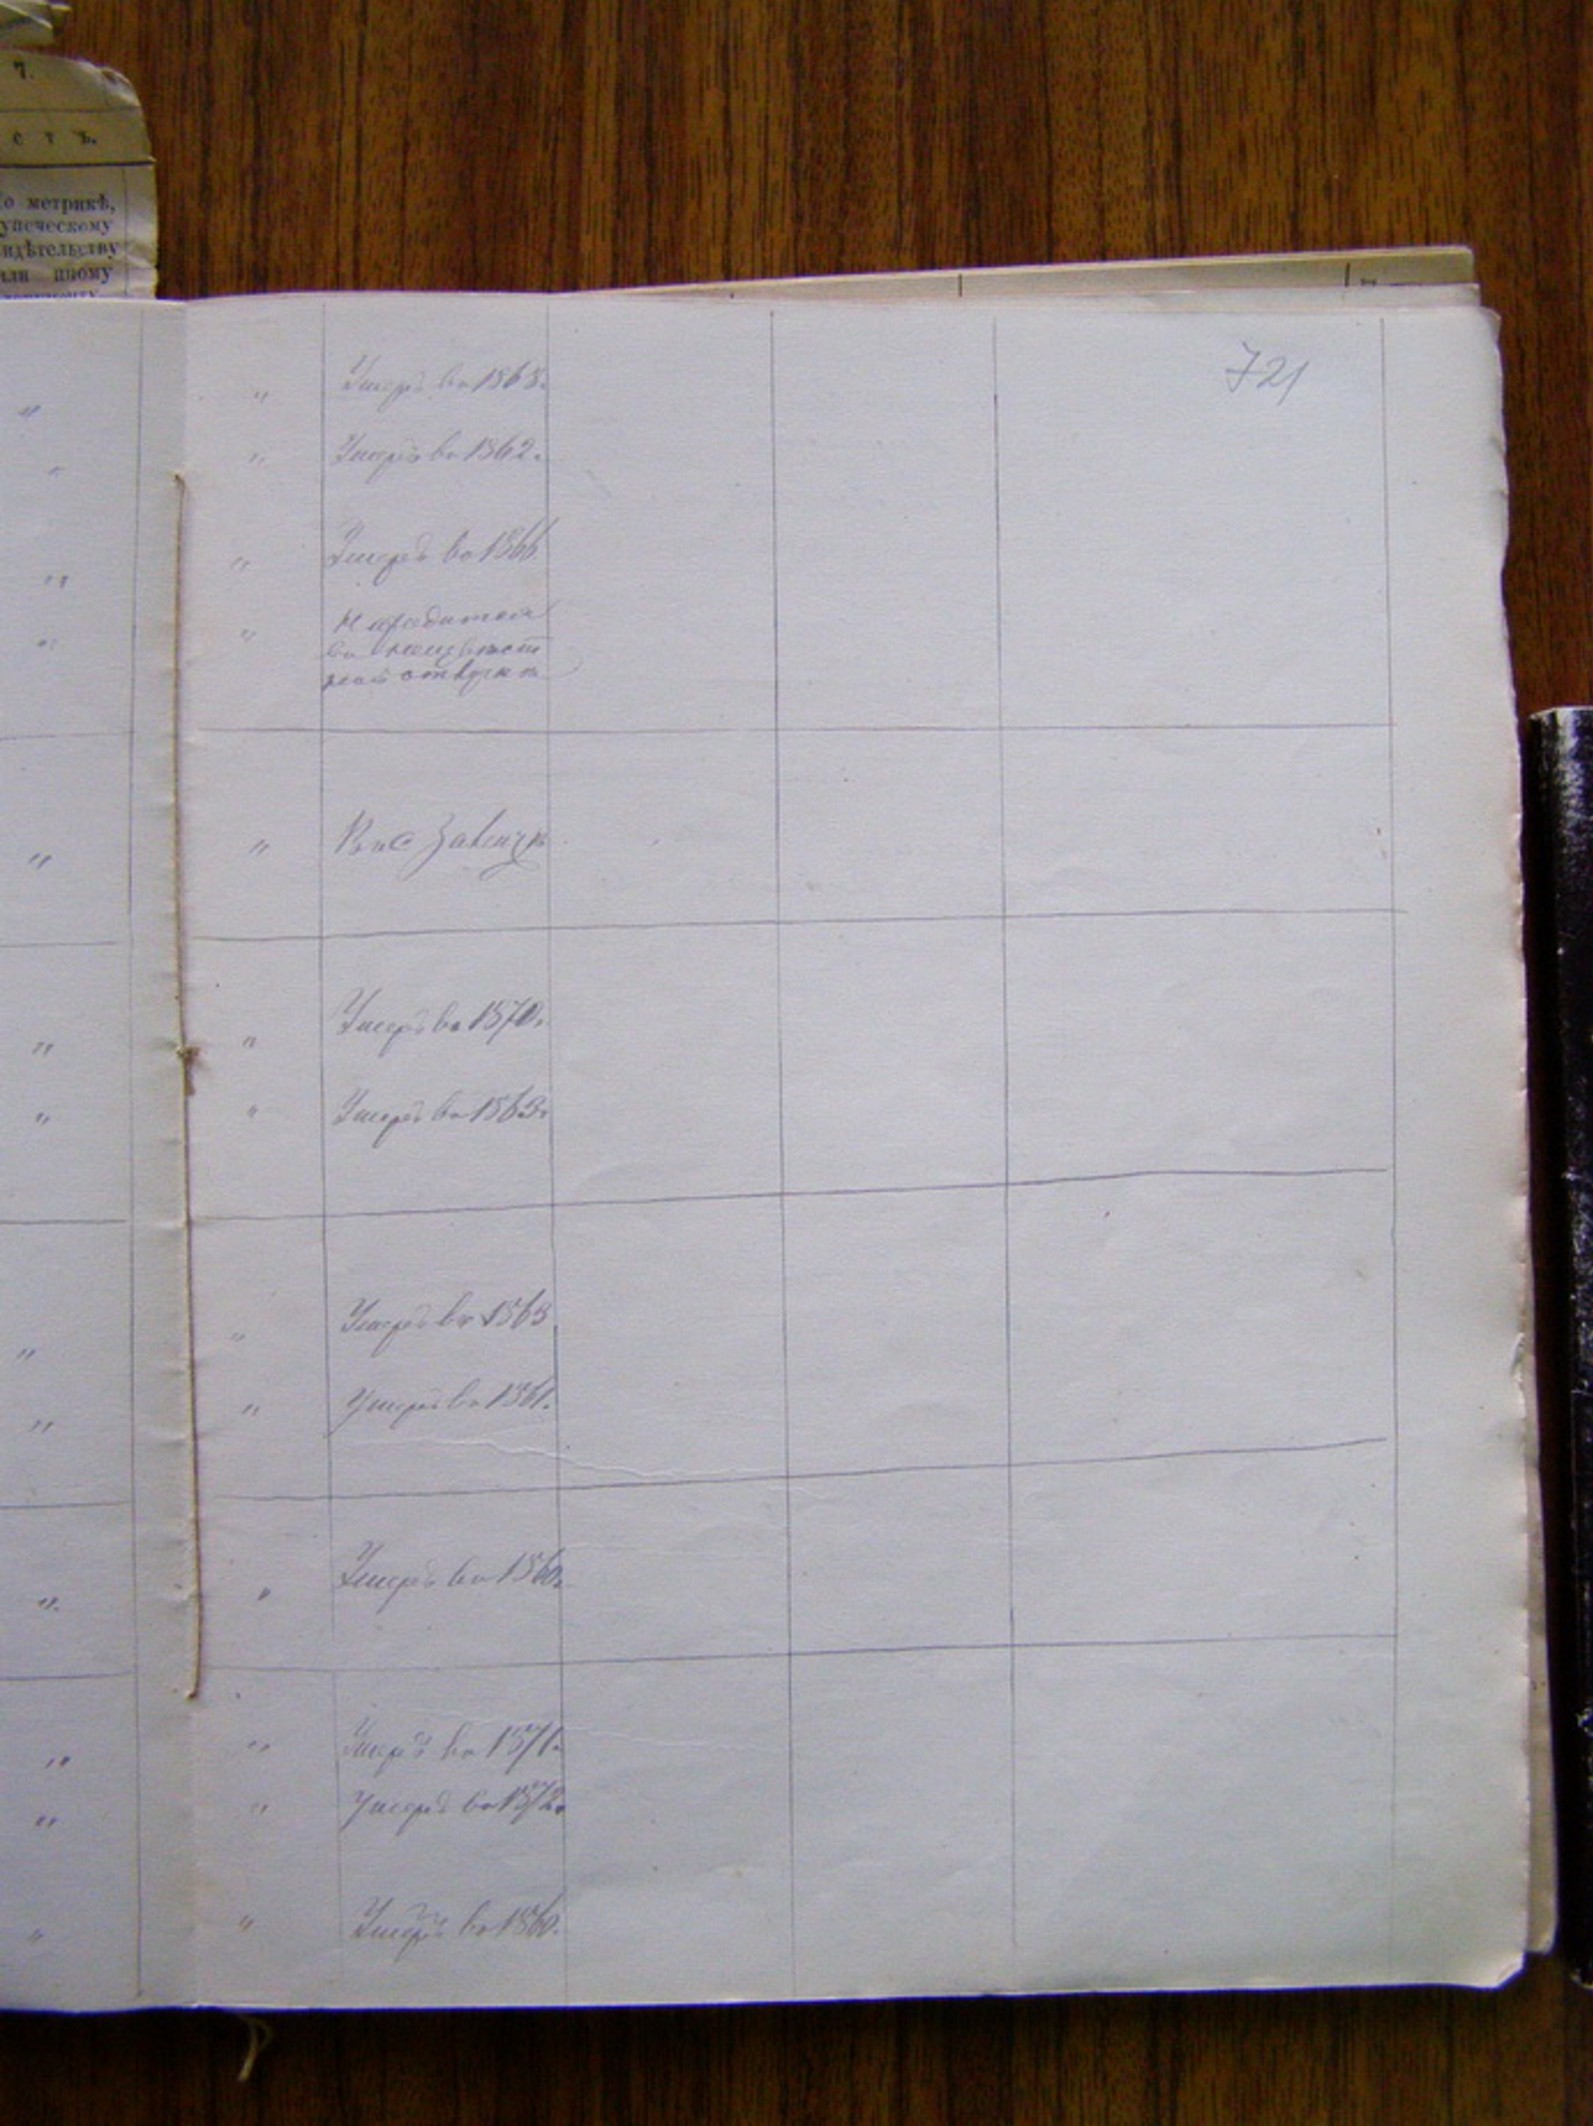 7.
с т ъ.
о метрикѣ,
упеческому
идѣтельству
или иному
721
" " Умеръ въ 1868.
" " Умеръ въ 1862.
" " Умеръ въ 1866
" " Находится
въ неизвѣст
ной отлучкѣ
" "
" " Умеръ въ 1870.
" " Умеръ въ 1863.
" " Умеръ въ 1863
" " Умеръ въ 1861.
" " Умеръ въ 1860.
" " Умеръ въ 1871.
" " Умеръ въ 1872.
" " Умеръ въ 1860.